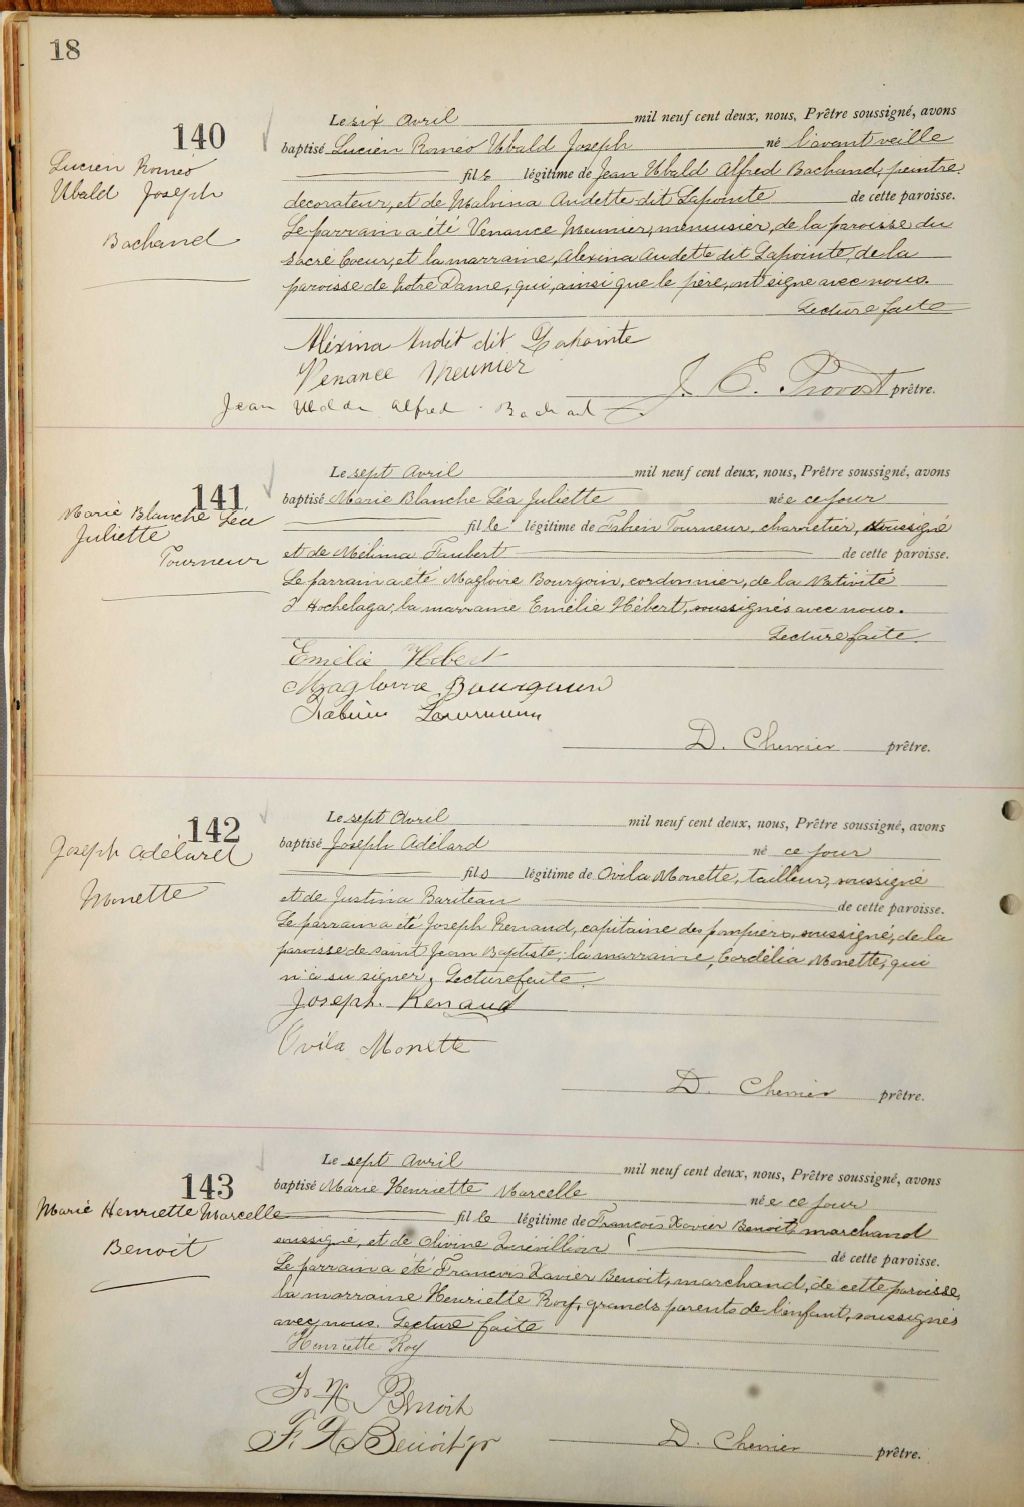 18
140
Lucien Roméo
Ubald Joseph
Bachand
Le six Avril mil neuf cent deux, nous, Prêtre soussigné, avons
baptisé Lucien Roméo Ubald Joseph né l'avant veille
fils légitime de Jean Ubald Alfred Bachand, peintre
decorateur, et de Malvina Audette dit Lapointe de cette paroisse.
Le parrain a été Venance Meunier, menuisier, de la paroisse du
Sacré Coeur, et la marraine, Alexina Audette dit Lapointe, de la
paroisse de Notre Dame, qui, ainsi que le père, ont signé avec nous.
Lecture faite
Aléxina Audit dit Lapointe
Venance Meunier
Jean Alfred Bachand
J. E. Provost prêtre.
141
Marie Blanche Léa
Juliette
Tourneur
Le sept Avril mil neuf cent deux, nous, Prêtre soussigné, avons
baptisé Marie Blanche Léa Juliette née ce jour
fille légitime de Fabien Tourneur, charretier, soussigné
et de Mélina Faubert de cette paroisse.
Le parrain a été Magloire Bourgoin, cordonnier, de la Nativité
d'Hochelaga, la marraine Emélie Hébert, soussignés avec nous.
Lecture faite.
Emélie Hebert
Magloire Bourgouin
Fabien
D. Cherrier prêtre.
142
Joseph Adélard
Monette
Le sept Avril mil neuf cent deux, nous, Prêtre soussigné, avons
baptisé Joseph Adélard né ce jour
fils légitime de Ovila Monette, tailleur, soussigné
et de Justina Bariteau de cette paroisse.
Le parrain a été Joseph Renaud, capitaine des pompiers, soussigné, de la
paroisse de Saint Jean Baptiste; la marraine, Cordélia Monette, qui
n'a su signer. Lecture faite.
Joseph. Renaud
Ovila Monette
D. Cherrier prêtre.
143
Marie Henriette Marcelle
Benoit
Le sept Avril mil neuf cent deux, nous, Prêtre soussigné, avons
baptisé Marie Henriette Marcelle née ce jour
fille légitime de François Xavier Benoit, marchand
soussigné, et de Olivine Quévillion de cette paroisse.
Le parrain a été Francois Xavier Benoit, marchand, de cette paroisse,
la marraine Henriette Roy, grands parents de l'enfant, soussignés
avec nous. Lecture faite
Henriette Roy
F X Benoit
F. X Benoit jr
D. Cherrier prêtre.